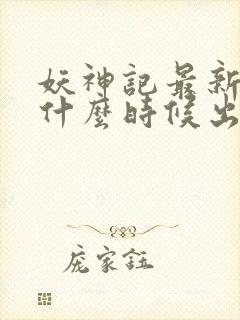 妖神記最新
什麼時候出
庞家鈺